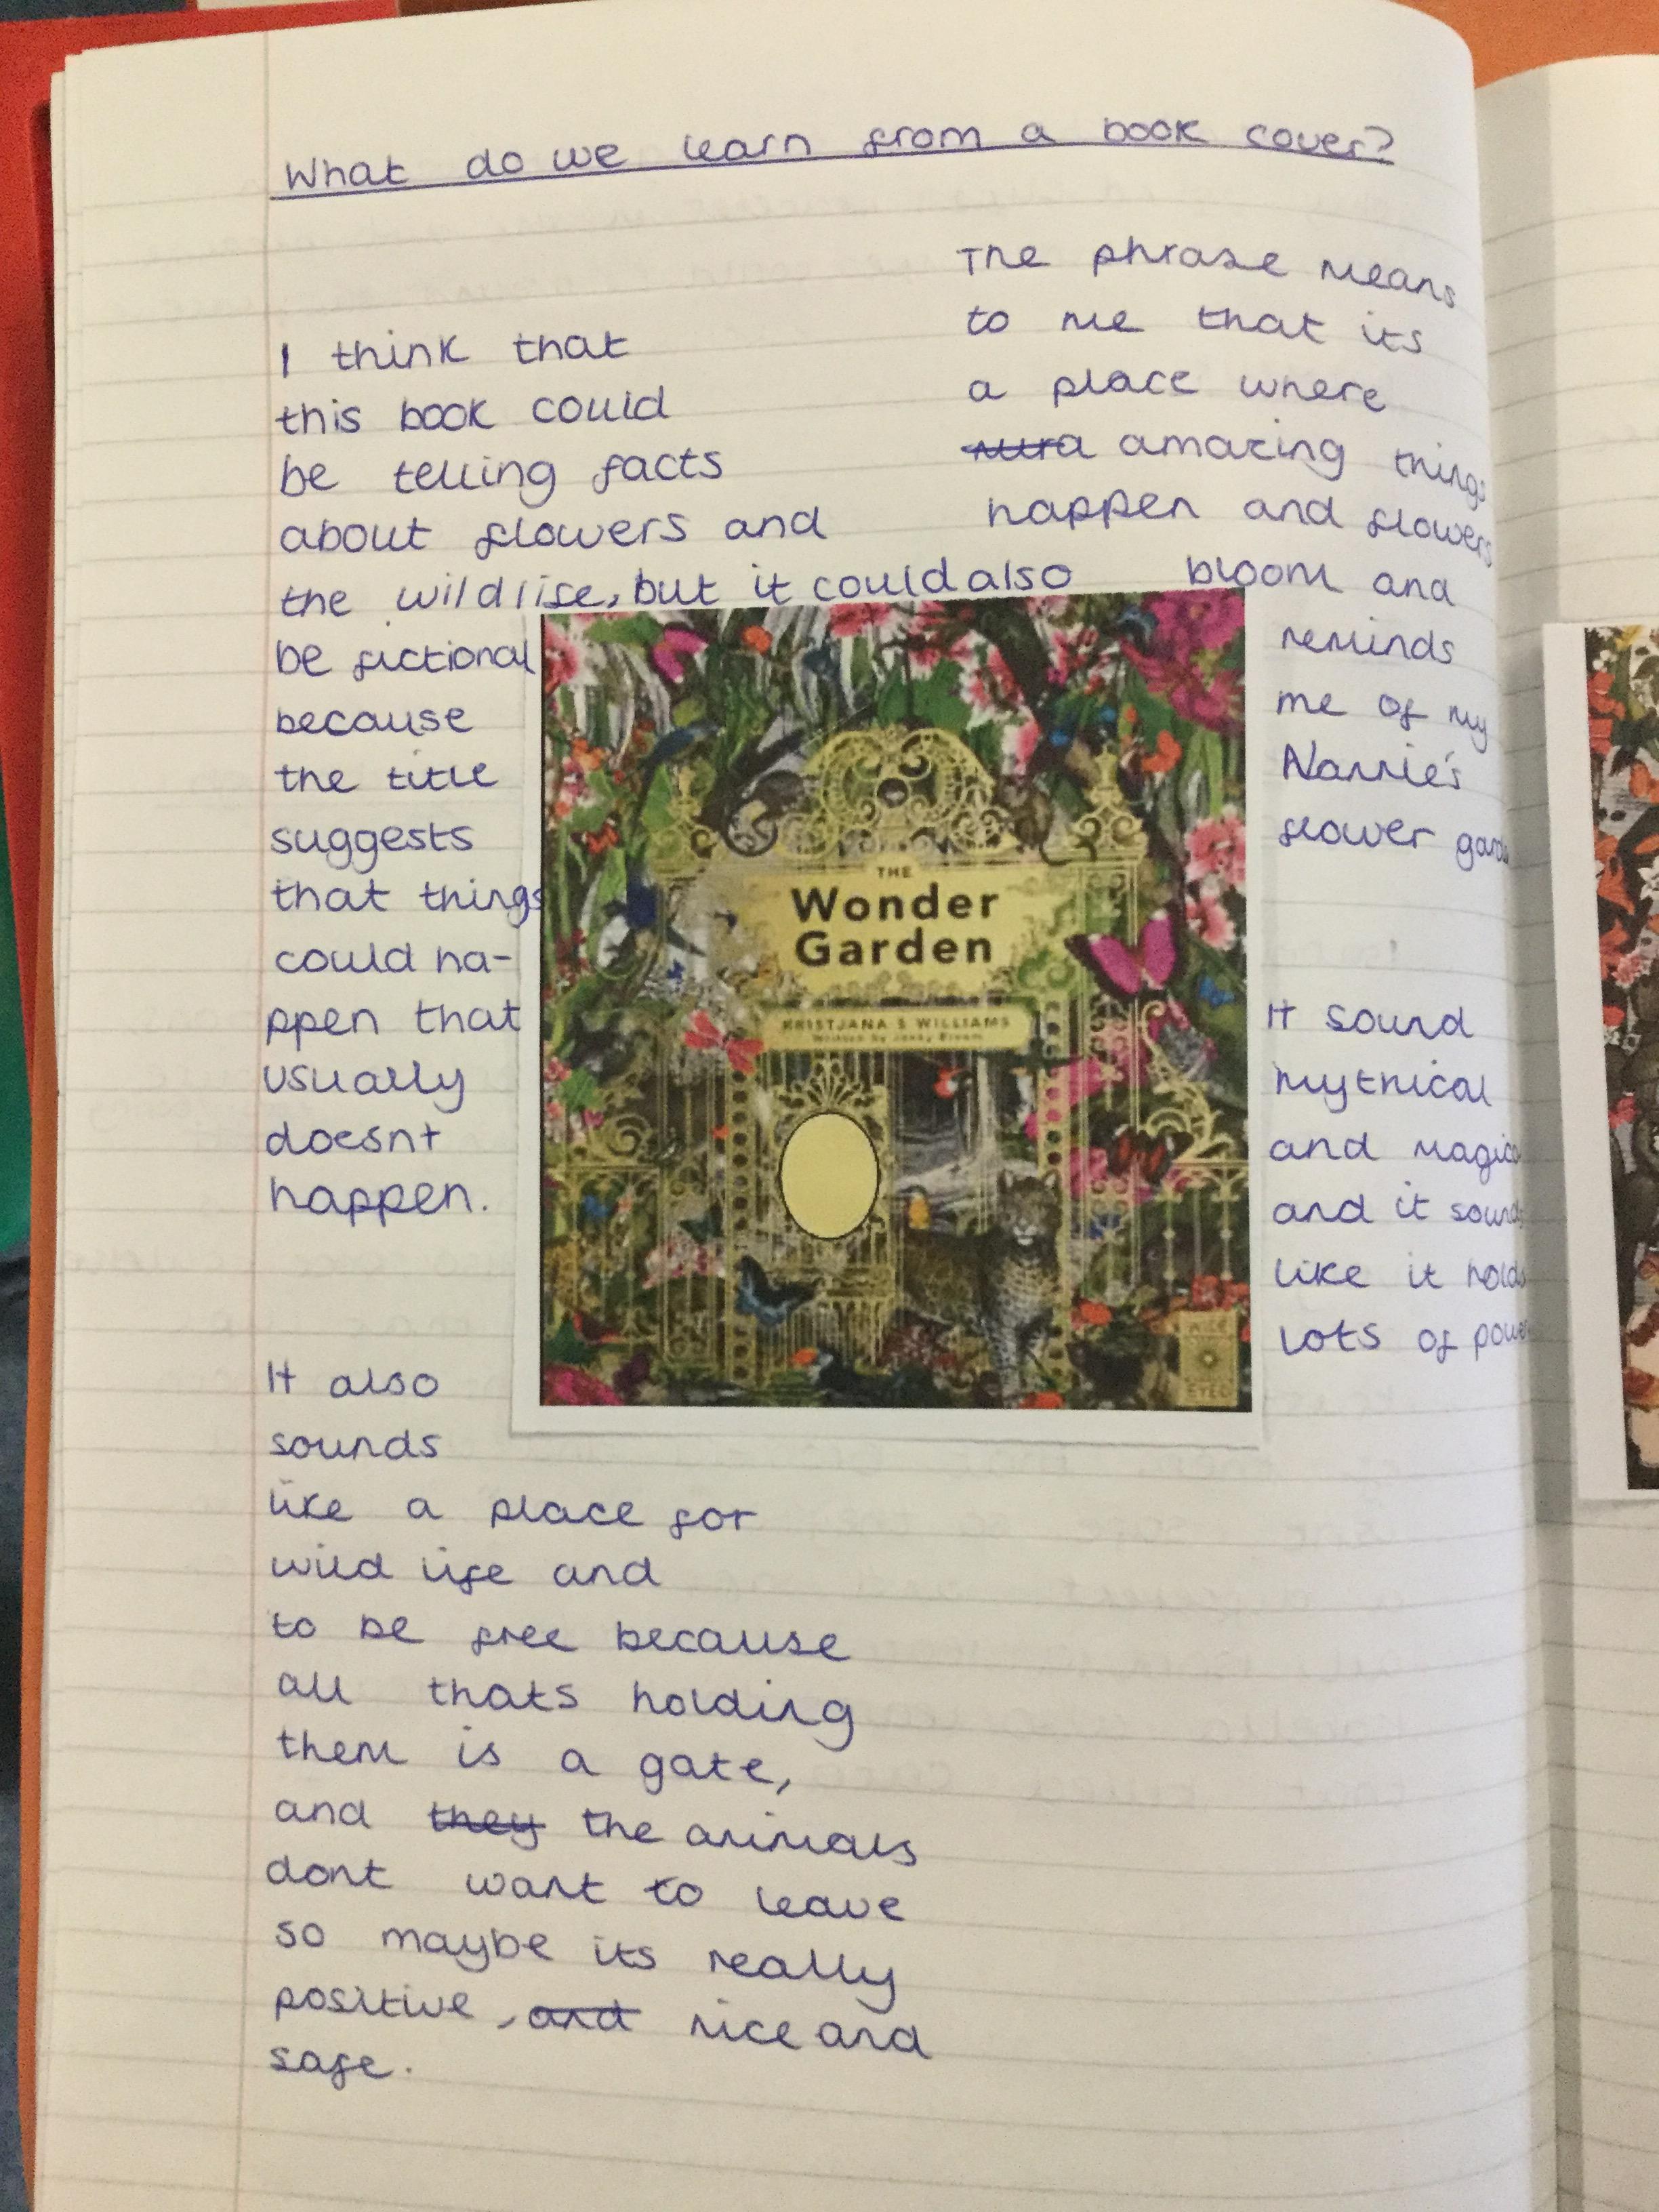 What do we learn from a book cover?
I think that
this book could
be telling facts
about flowers and
the wildlife, but it could also
be fictional
because
the title
suggests
that things
could ha-
ppen that
usually
doesnt
happen.
It also
sounds
like a place for
wild life and
to be free because
all thats holding
them is a gate,
and they the animals
dont want to leave
so maybe its really
positive, and nice and
safe.
The phrase means
to me that its
a place where
amazing things
happen and flowers
bloom and
reminds
me of my
Nannie's
flower garde
It sound
mythical
and magica
and it sounds
like it holds
lots of power
THE
Wonder
Garden
KRISTJANA S WILLIAMS
Written by Jenny Broom
WIDE
EYED